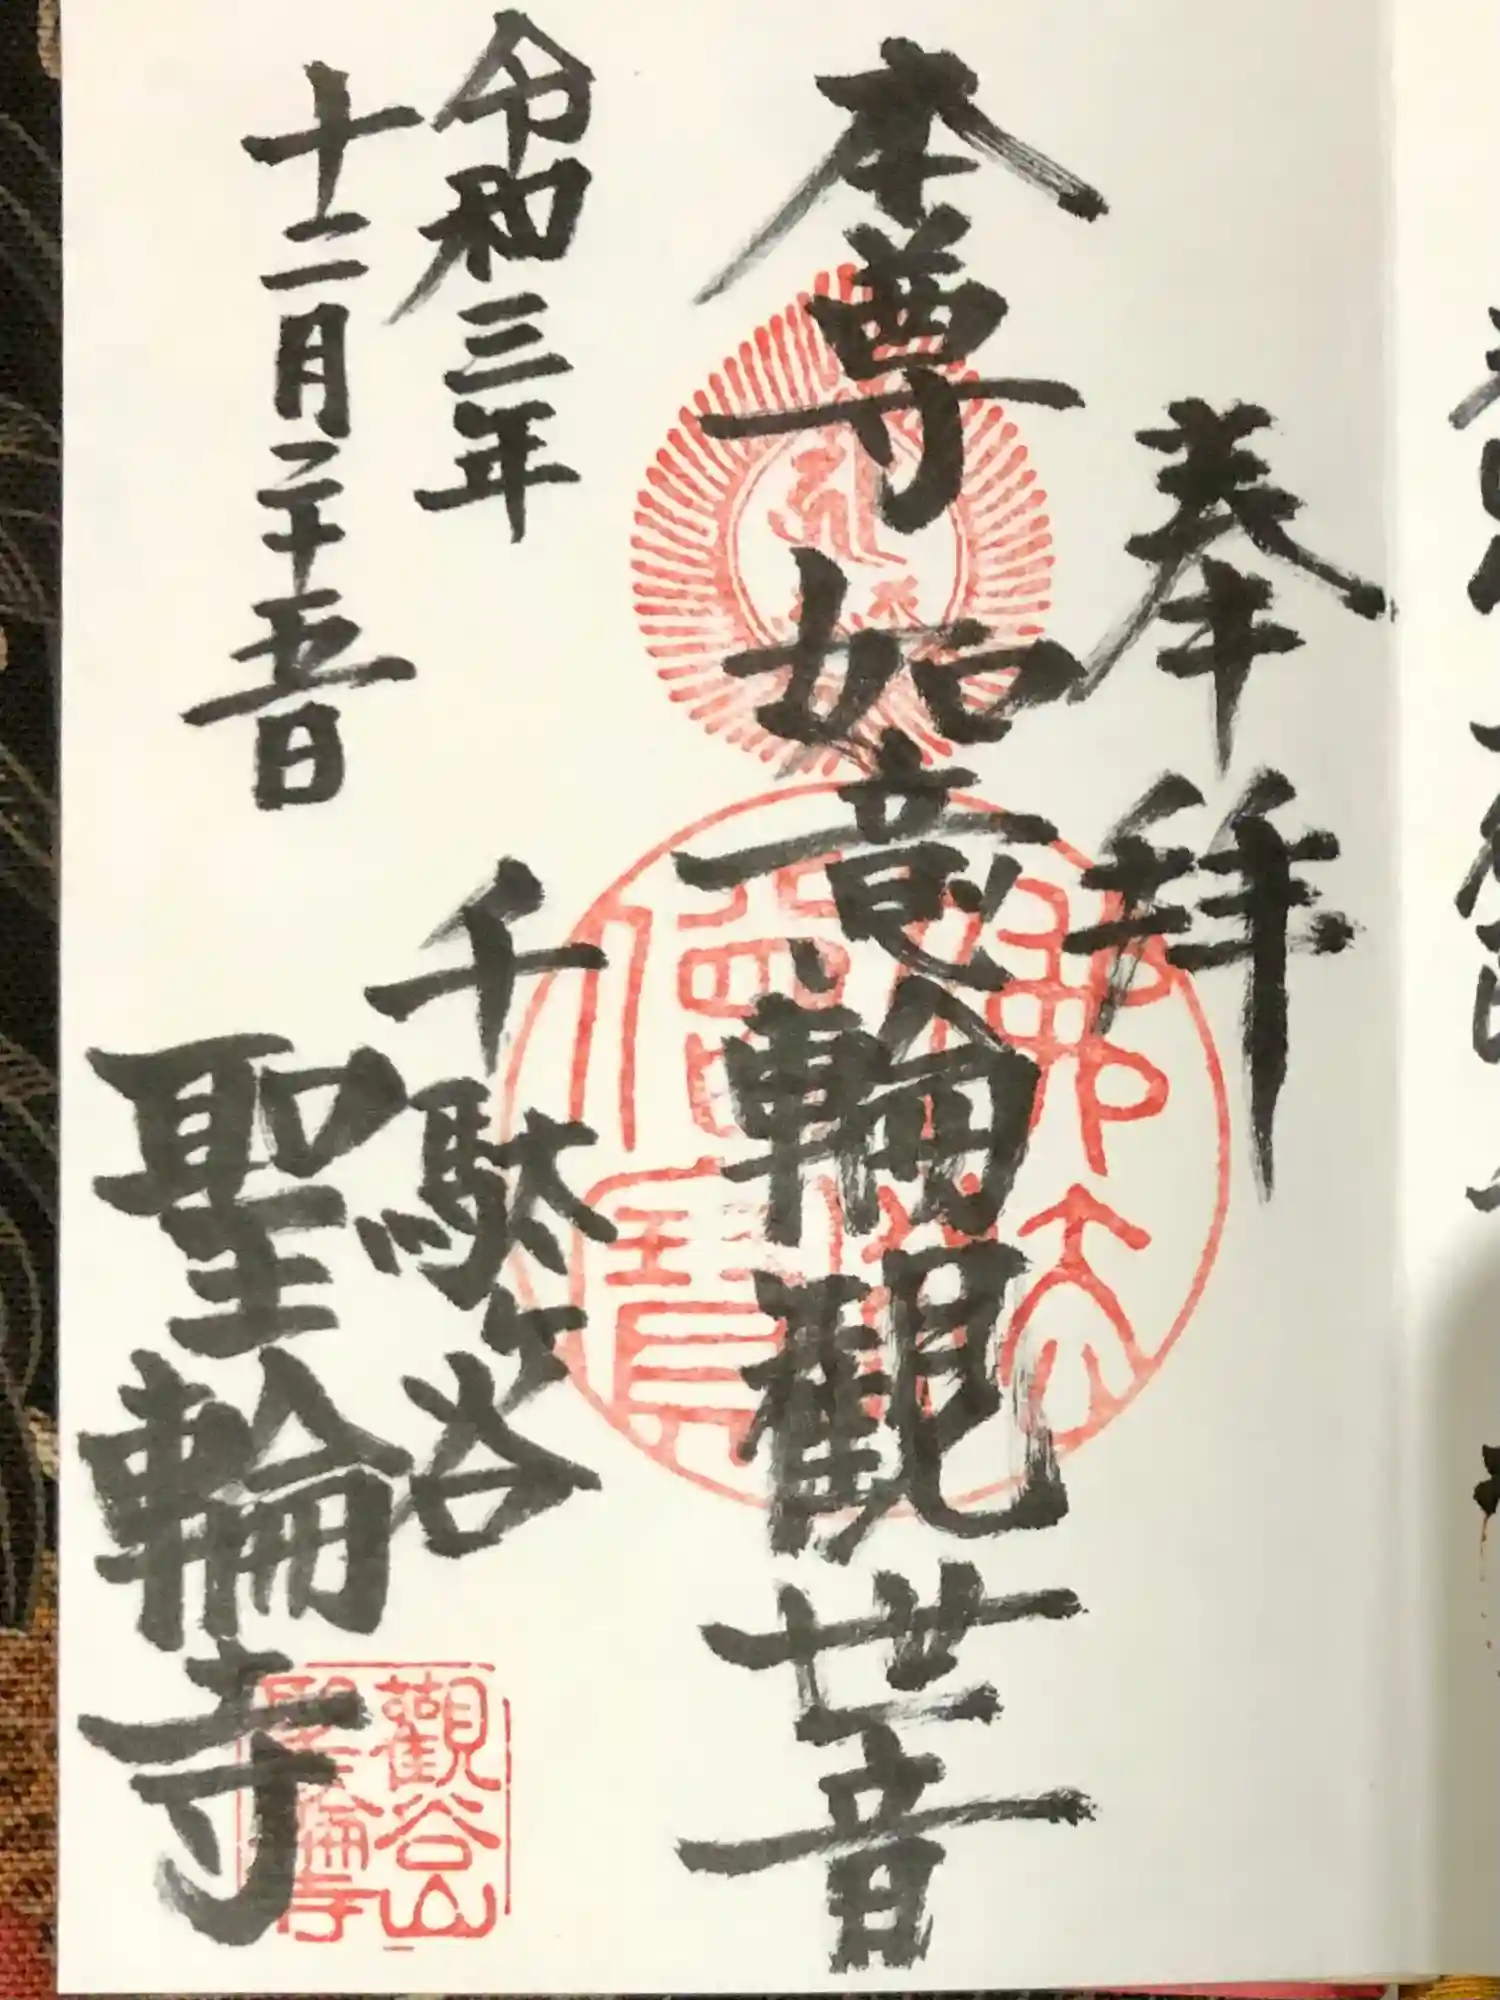 奉拝
本尊如意輪觀世音
令和三年
十二月二十五日
千駄ヶ谷
聖輪寺
佛法僧寶
觀谷山
聖輪寺